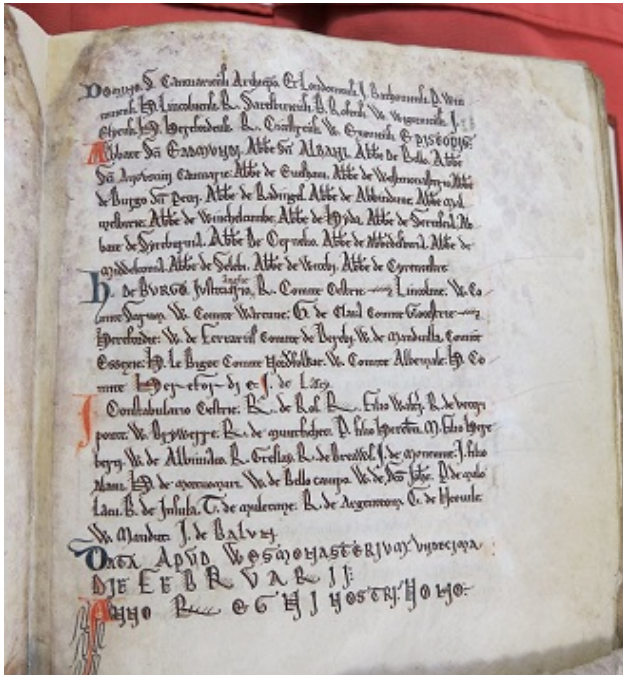 Domino S. Cantuariensi Archiepo. E. Londoniensi. J. Bathoniensi. P. Win
toniensi. H. Lincolniensi. R. Saresburiensi. B. Rofensi. W. Wigorniensi. J.
Elyensi. H. Herefordensi. R. Cicestrensi. W. Exoniensi. EPISCOPIS.
Abbate Sci EADMUNDI. Abbe Sci ALBANI. Abbe De Bello. Abbe
Sci Augustini Cantuarie. Abbe de Evesham. Abbe de Westmonasterio. Abbe
de Burgo Sci Petri. Abbe de Radinges. Abbe de Abbindune. Abbe Mal
mesburie. Abbe de Winchelcumbe. Abbe de Hyda. Abbe de Certesei. Ab
bate de Syreburne. Abbe De Cernelio. Abbe de Abbedesburi. Abbe de
Middeltone. Abbe de Selebi. Abbe de Cyrencestre.
H. DE BURGO. Justiciario. R. Comite Cestrie Lincolnie. W. Co
mite Sarum. W. Comite Warenne. G. de Clare Comite Gloestrie
Herefordie. W. de Ferrariis Comite de Derby. W. de Mandevilla. Comite
Essexie. H. Le Bigot Comite Nordfolkie. W. Comite Albemarle. H. Co
mite Herefordie. J. de Lacy.
Constabulario Cestrie. R. de Ros. R. Filio Walteri. R. de veteri
ponte. W. Bruwerre. R. de muntfichet. P. filio Hereberti. M. Filio Here
berti. W. de Albiniaco. R. Gresley. R. de Breawse. J. de Monemue. J. filio
Alani. H. de mortuomari. W. de Bello campo. W. de Sco Johe. P. de malo
lacu. B. de Insula. T. de muletune. R. de Argentom. G. de Nevile.
W. Mauduit. J. de BALUN.
DATA APUD WESMONASTERIUM. Undecima
DIE FEBRUARII.
ANNO REGNI NOSTRI. NONO.